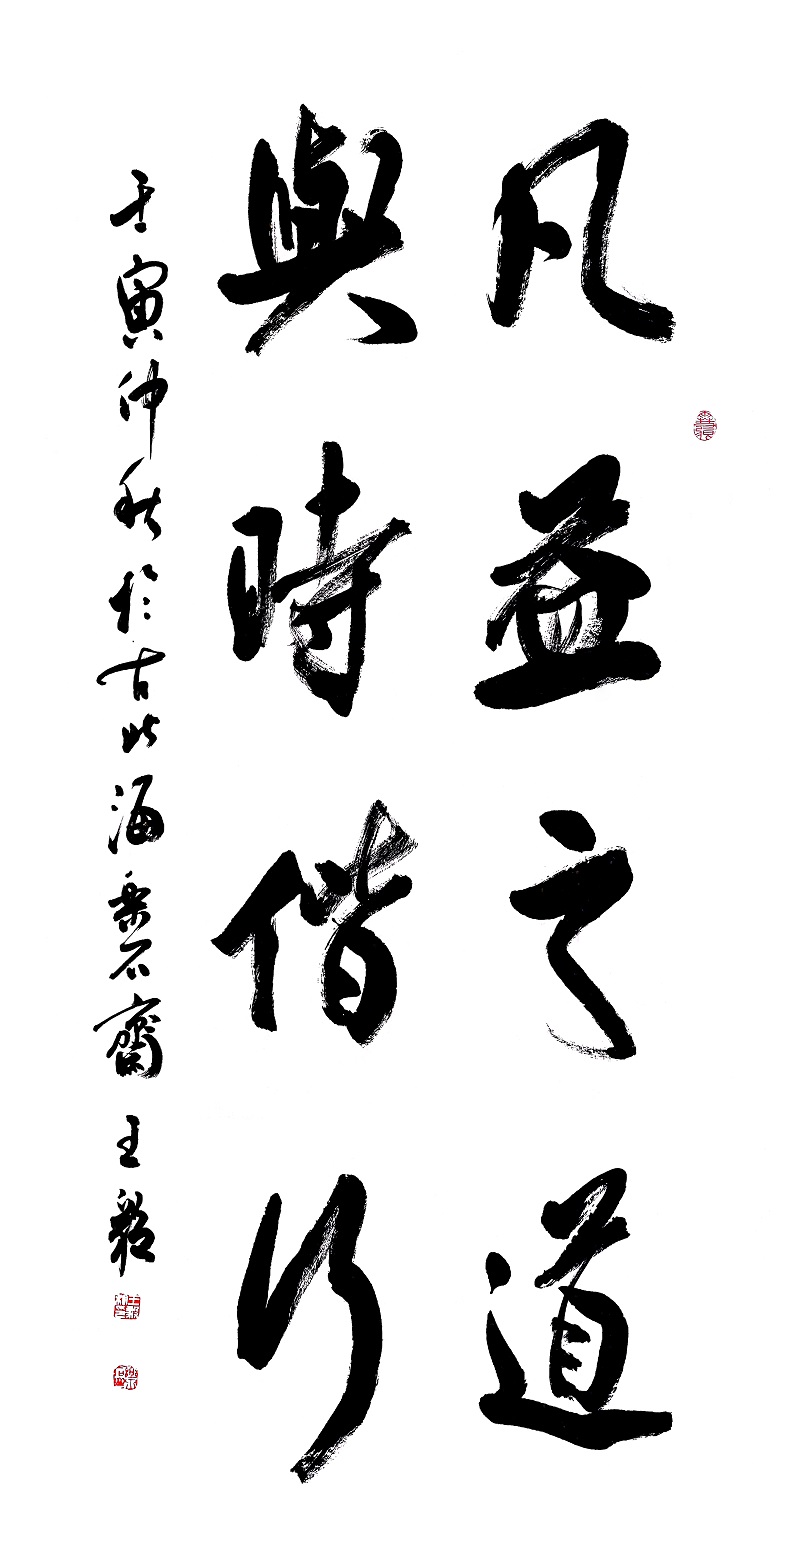 凡益之道
與時偕行
壬寅仲秋於古北海桑石齋王毅